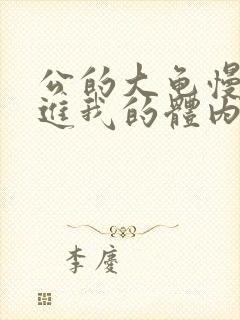 公的大龟慢
进我的體内
李廈